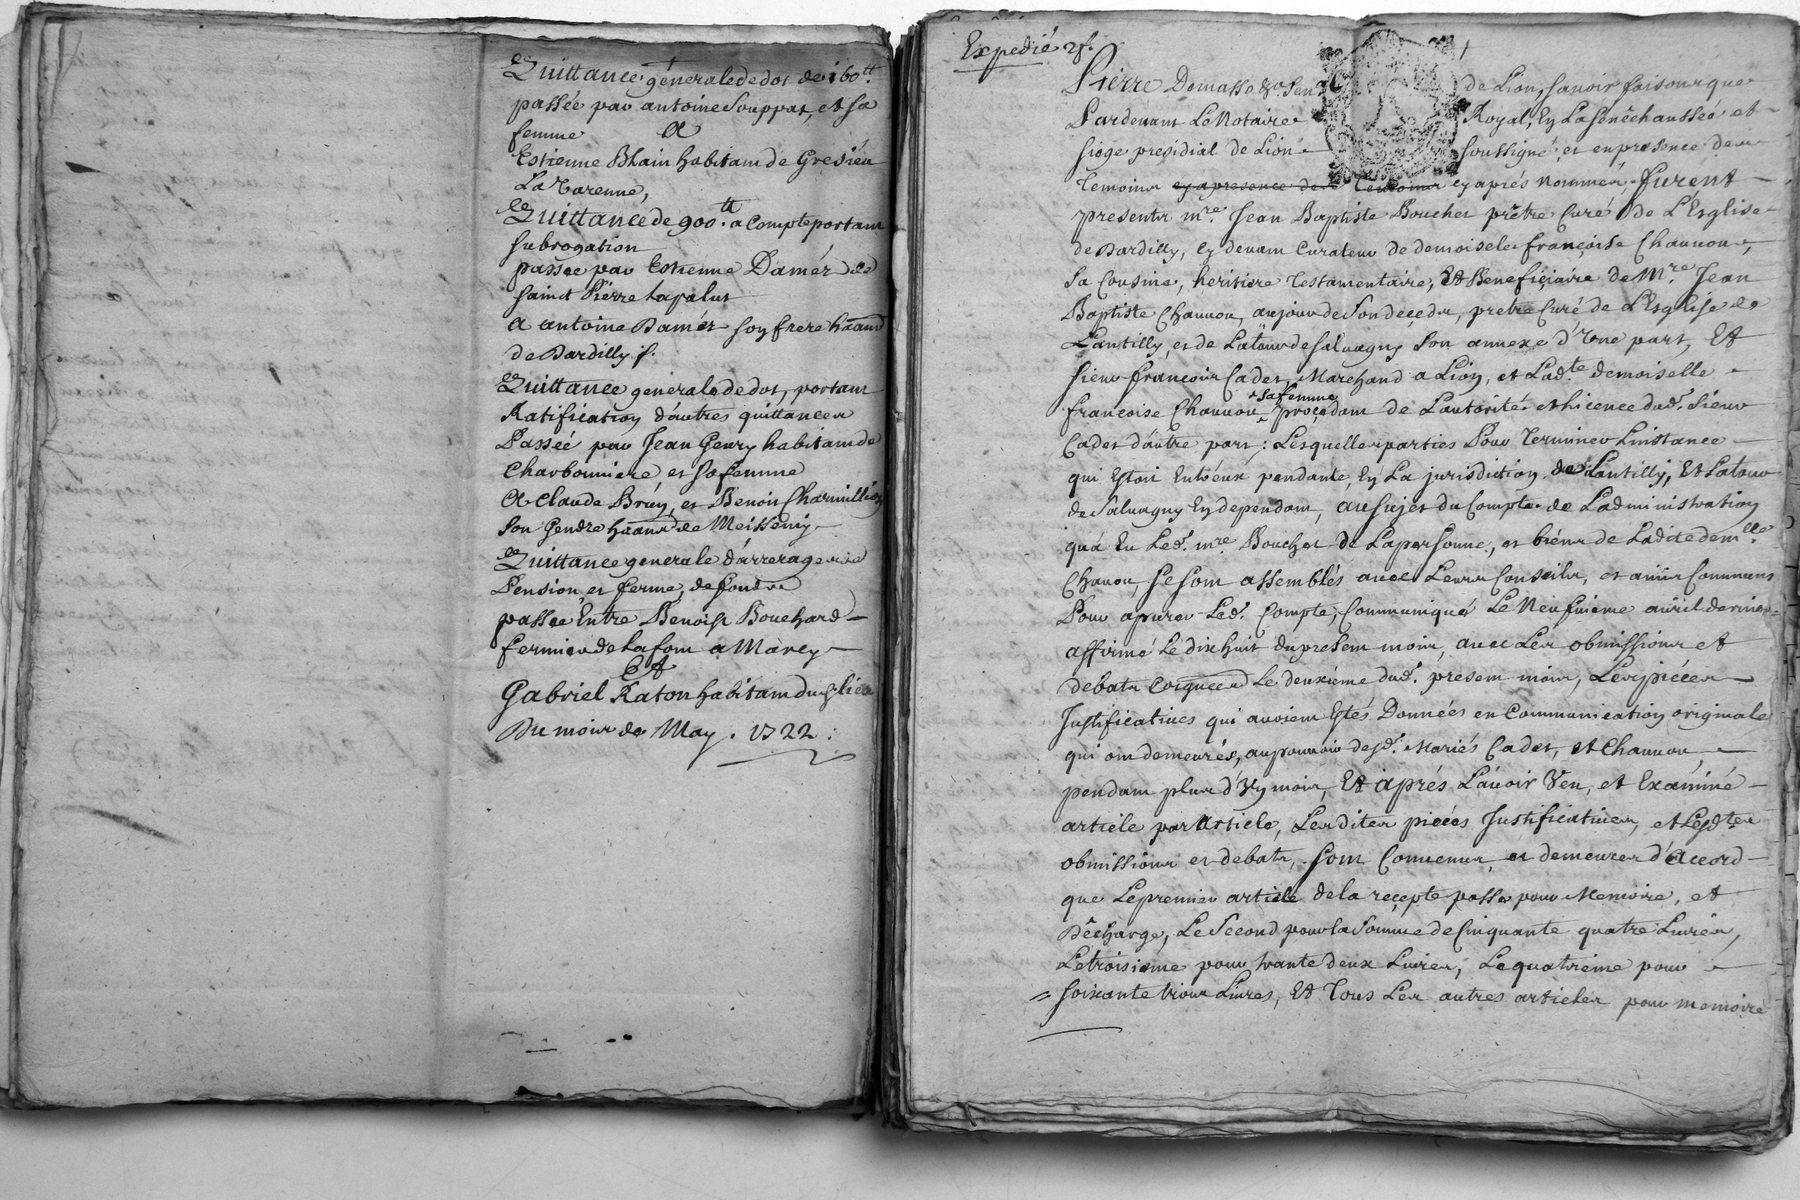 Quittance generale de dot de 160 tt.
passée par antoine Souppat, et sa
femme A
Estienne Blain habitant de Gresieu
La Varenne,
Quittance de 900 tt. a compte portant
subrogation
passée par Estienne Damez de
Sainct Pierre Lapalus
A antoine Damez son frere haant
de Dardilly f.
Quittance generale de dot, portant
Ratification d'autres quittances
Passée par Jean Geury habitant de
Charbonniere et sa femme
A Claude Bruy, et Benoit Charmillion
son Gendre haant de Messemy
Quittance generale d'arrerages de
Pension, et ferme, de fonds
passée Entre Benoist Bouchard
fermier de Lafont a Marcy
Et
Gabriel Raton habitant dud. lieu
Du mois de May. 1722.
Expedié 2f.
1
Pierre de Lion, sçavoir faisons que
Pardevant Le Notaire Royal, En La senêchaussée et
siege presidial de Lion soussigné, et en presence des
Temoins en presence des Temoins cy aprés nommés. furent
presents mre. Jean Baptiste Bouchet prêtre Curé de L'Esglise
de Dardilly, cy devant Curateur de demoiselle françoise Chauvou,
sa Cousine, heritiere testamentaire, Et Beneficiaire de Mre. Jean
Baptiste Chauvou, au jour de son deceds, pretre Curé de L'Esglise de
Lantilly, et de Latour de Salvagny son annexe d'Une part, Et
sieur françois Cadet, Marchand a Lion, et Ladte. demoiselle
françoise Chauvou sa femme procedant de L'autorité et Licence dud. sieur
Cadet d'autre part; Lesquelles parties Pour Terminer L'instance
qui Estoit Entr'eux pendante, En La jurisdiction de Lantilly, Et Latour
de Salvagny En dependant, au sujet du Compte de L'administration
qu'a Eu Led. mre. Bouchet de La personne, et biens de Ladite demlle.
Chauvou, se sont assemblés avec Leurs Conseils, et amis Communs
Pour apurer Led. Compte, Communiqué Le Neufvieme avril dernier
affirmé Le dix huit du present mois, avec Les obmissions et
debats Le deuxiéme dud. present mois, Les piéces
Justificatives qui avoient Estés Données en Communication originale
qui ont demeurés, au pouvoir desd. Mariés Cadet, et Chauvou
pendant plus d'Un mois, Et aprés L'avoir Veu, et Examiné
article par article, Les dites piéces Justificatives, et Lesdtes
obmissions et debats, sont Convenus et demeurés d'accord
que Le premier article de la recepte passe pour Memoire, et
Décharge, Le Second pour la somme de Cinquante quatre Livres,
Le troisieme pour trante deux Livres, Le quatrieme pour
soixante trois Livres, Et Tous Les autres articles pour memoire